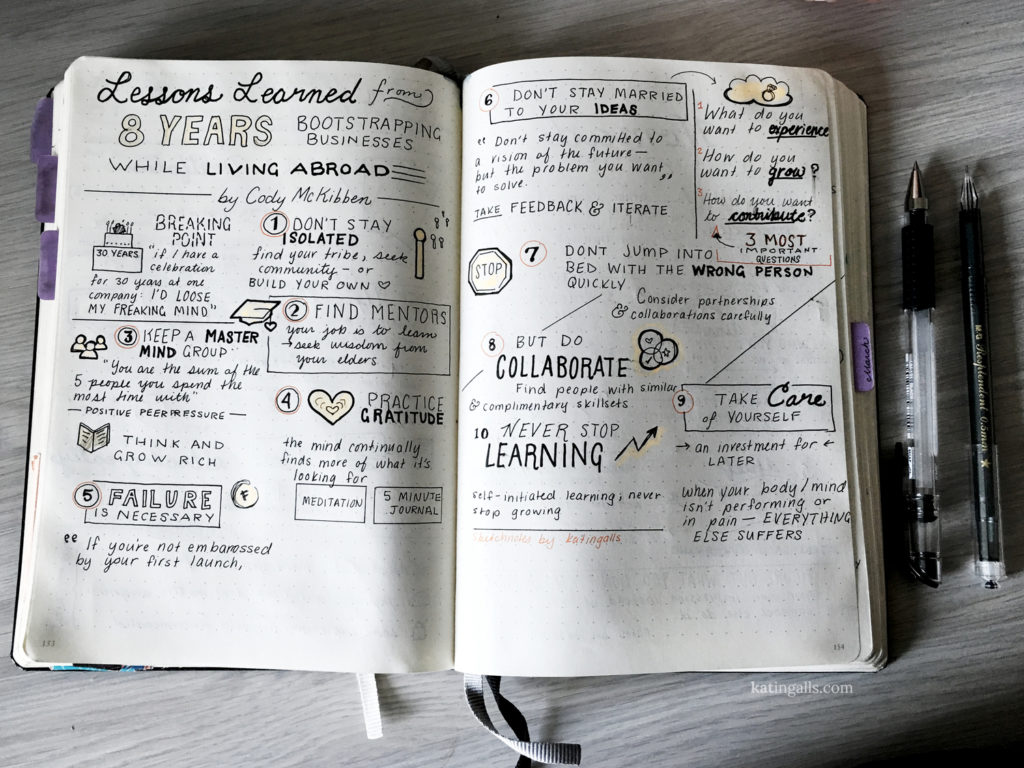 Lessons Learned from
8 YEARS BOOTSTRAPPING
BUSINESSES
WHILE LIVING ABROAD
by Cody McKibben
BREAKING
POINT
30 YEARS
"if I have a
celebration
for 30 years at one
company: I'D LOOSE
MY FREAKING MIND"
1 DON'T STAY
ISOLATED
find your tribe, seek
community - or
BUILD YOUR OWN ♡
2 FIND MENTORS
your job is to learn
→ seek wisdom from
your elders
3 KEEP A MASTER
MIND GROUP
"You are the sum of the
5 people you spend the
most time with"
— POSITIVE PEER PRESSURE —
THINK AND
GROW RICH
4 PRACTICE
GRATITUDE
the mind continually
finds more of what it's
looking for
MEDITATION
5 MINUTE
JOURNAL
5 FAILURE
IS NECESSARY
F
"If you're not embarossed
by your first launch,
153
6 DON'T STAY MARRIED
TO YOUR IDEAS
"Don't stay committed to
a vision of the future —
but the problem you want
to solve."
TAKE FEEDBACK & ITERATE
1 What do you
want to experience
2 How do you
want to grow?
3 How do you want
to contribute?
3 MOST
IMPORTANT
QUESTIONS
STOP
7 DONT JUMP INTO
BED WITH THE WRONG PERSON
QUICKLY
Consider partnerships
& collaborations carefully
8 BUT DO
COLLABORATE
Find people with similar
& complimentary skillsets
9 TAKE Care
of YOURSELF
→ an investment for ←
LATER
when your body/mind
isn't performing or
in pain — EVERYTHING
ELSE SUFFERS
10 NEVER STOP
LEARNING
self-initiated learning; never
stop growing
sketchnotes by katingalls
154
March
katingalls.com